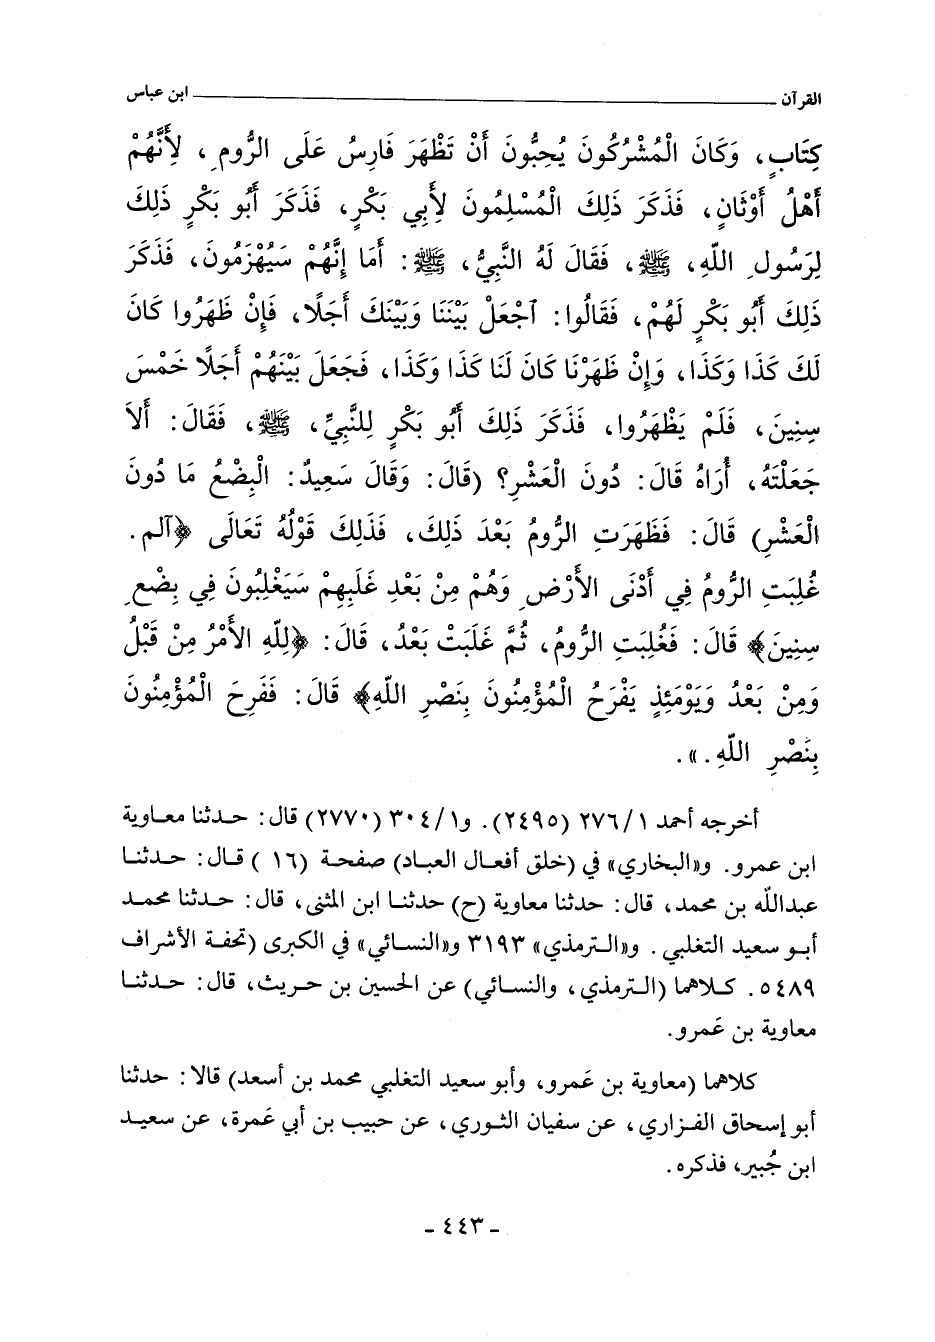 القرآن ــــــــــــــــــــــــــــــــ ابن عباس
كِتَابٍ، وَكَانَ الْمُشْرِكُونَ يُحِبُّونَ أَنْ تَظْهَرَ فَارِسُ عَلَى الرُّومِ، لِأَنَّهُمْ
أَهْلُ أَوْثَانٍ، فَذَكَرَ ذَلِكَ الْمُسْلِمُونَ لِأَبِي بَكْرٍ، فَذَكَرَ أَبُو بَكْرٍ ذَلِكَ
لِرَسُولِ اللّهِ، ﷺ، فَقَالَ لَهُ النَّبِيُّ، ﷺ: أَمَا إِنَّهُمْ سَيُهْزَمُونَ، فَذَكَرَ
ذَلِكَ أَبُو بَكْرٍ لَهُمْ، فَقَالُوا: ٱجْعَلْ بَيْنَنَا وَبَيْنَكَ أَجَلًا، فَإِنْ ظَهَرُوا كَانَ
لَكَ كَذَا وَكَذَا، وَإِنْ ظَهَرْنَا كَانَ لَنَا كَذَا وَكَذَا، فَجَعَلَ بَيْنَهُمْ أَجَلًا خَمْسَ
سِنِينَ، فَلَمْ يَظْهَرُوا، فَذَكَرَ ذَلِكَ أَبُو بَكْرٍ لِلنَّبِيِّ، ﷺ، فَقَالَ: أَلاَ
جَعَلْتَهُ، أُرَاهُ قَالَ: دُونَ الْعَشْرِ؟ (قَالَ: وَقَالَ سَعِيدٌ: الْبِضْعُ مَا دُونَ
الْعَشْرِ) قَالَ: فَظَهَرَتِ الرُّومُ بَعْدَ ذَلِكَ، فَذَلِكَ قَوْلُهُ تَعَالَى ﴿آلم.
غُلِبَتِ الرُّومُ فِي أَدْنَى الأَرْضِ وَهُمْ مِنْ بَعْدِ غَلَبِهِمْ سَيَغْلِبُونَ فِي بِضْعِ
سِنِينَ﴾ قَالَ: فَغُلِبَتِ الرُّومُ، ثُمَّ غَلَبَتْ بَعْدُ، قَالَ: ﴿لِلّهِ الأَمْرُ مِنْ قَبْلُ
وَمِنْ بَعْدُ وَيَوْمَئِذٍ يَفْرَحُ الْمُؤْمِنُونَ بِنَصْرِ اللّهِ﴾ قَالَ: فَفَرِحَ الْمُؤْمِنُونَ
بِنَصْرِ اللّهِ.».
أخرجه أحمد ١/ ٢٧٦ (٢٤٩٥). و١/ ٣٠٤ (٢٧٧٠) قال: حدثنا معاوية
ابن عمرو. و«البخاري» في (خلق أفعال العباد) صفحة (١٦) قال: حدثنا
عبدالله بن محمد، قال: حدثنا معاوية (ح) حدثنا ابن المثنى، قال: حدثنا محمد
أبو سعيد التغلبي. و«الترمذي» ٣١٩٣ و«النسائي» في الكبرى (تحفة الأشراف
٥٤٨٩. كلاهما (الترمذي، والنسائي) عن الحسين بن حريث، قال: حدثنا
معاوية بن عَمرو.
كلاهما (معاوية بن عَمرو، وأبو سعيد التغلبي محمد بن أسعد) قالا: حدثنا
أبو إسحاق الفزاري، عن سفيان الثوري، عن حبيب بن أبي عَمرة، عن سعيد
ابن جُبير، فذكره.
- ٤٤٣ -